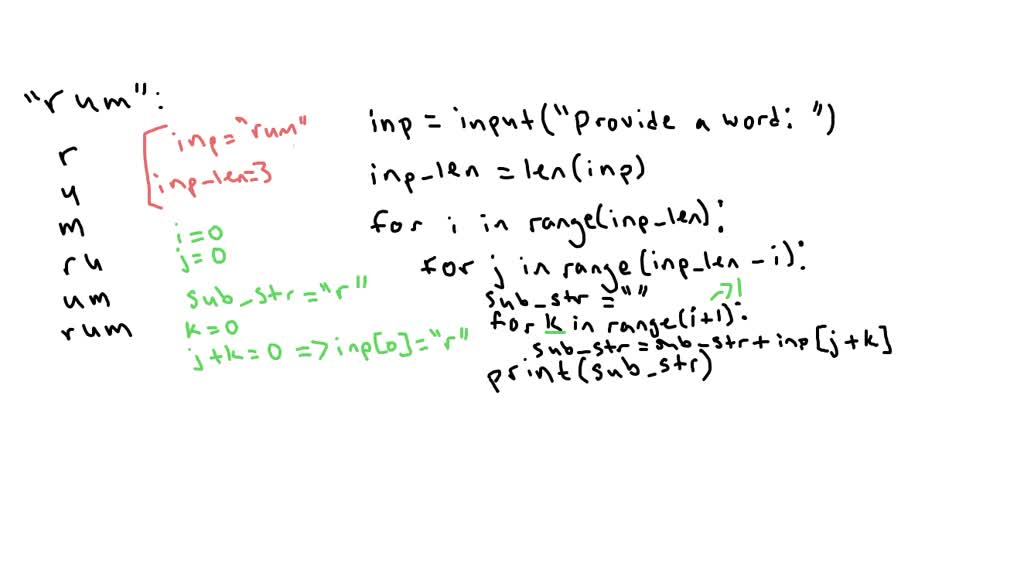 "rum":
r
u
m
ru
um
rum
inp="rum"
inp_len=3
i=0
j=0
sub_str="r"
k=0
j+k=0 => inp[0]="r"
inp = input("Provide a word: ")
inp_len = len(inp)
for i in range(inp_len):
for j in range(inp_len - i):
sub_str = ""
→1
for k in range(i+1):
sub_str = sub_str + inp[j+k]
print(sub_str)